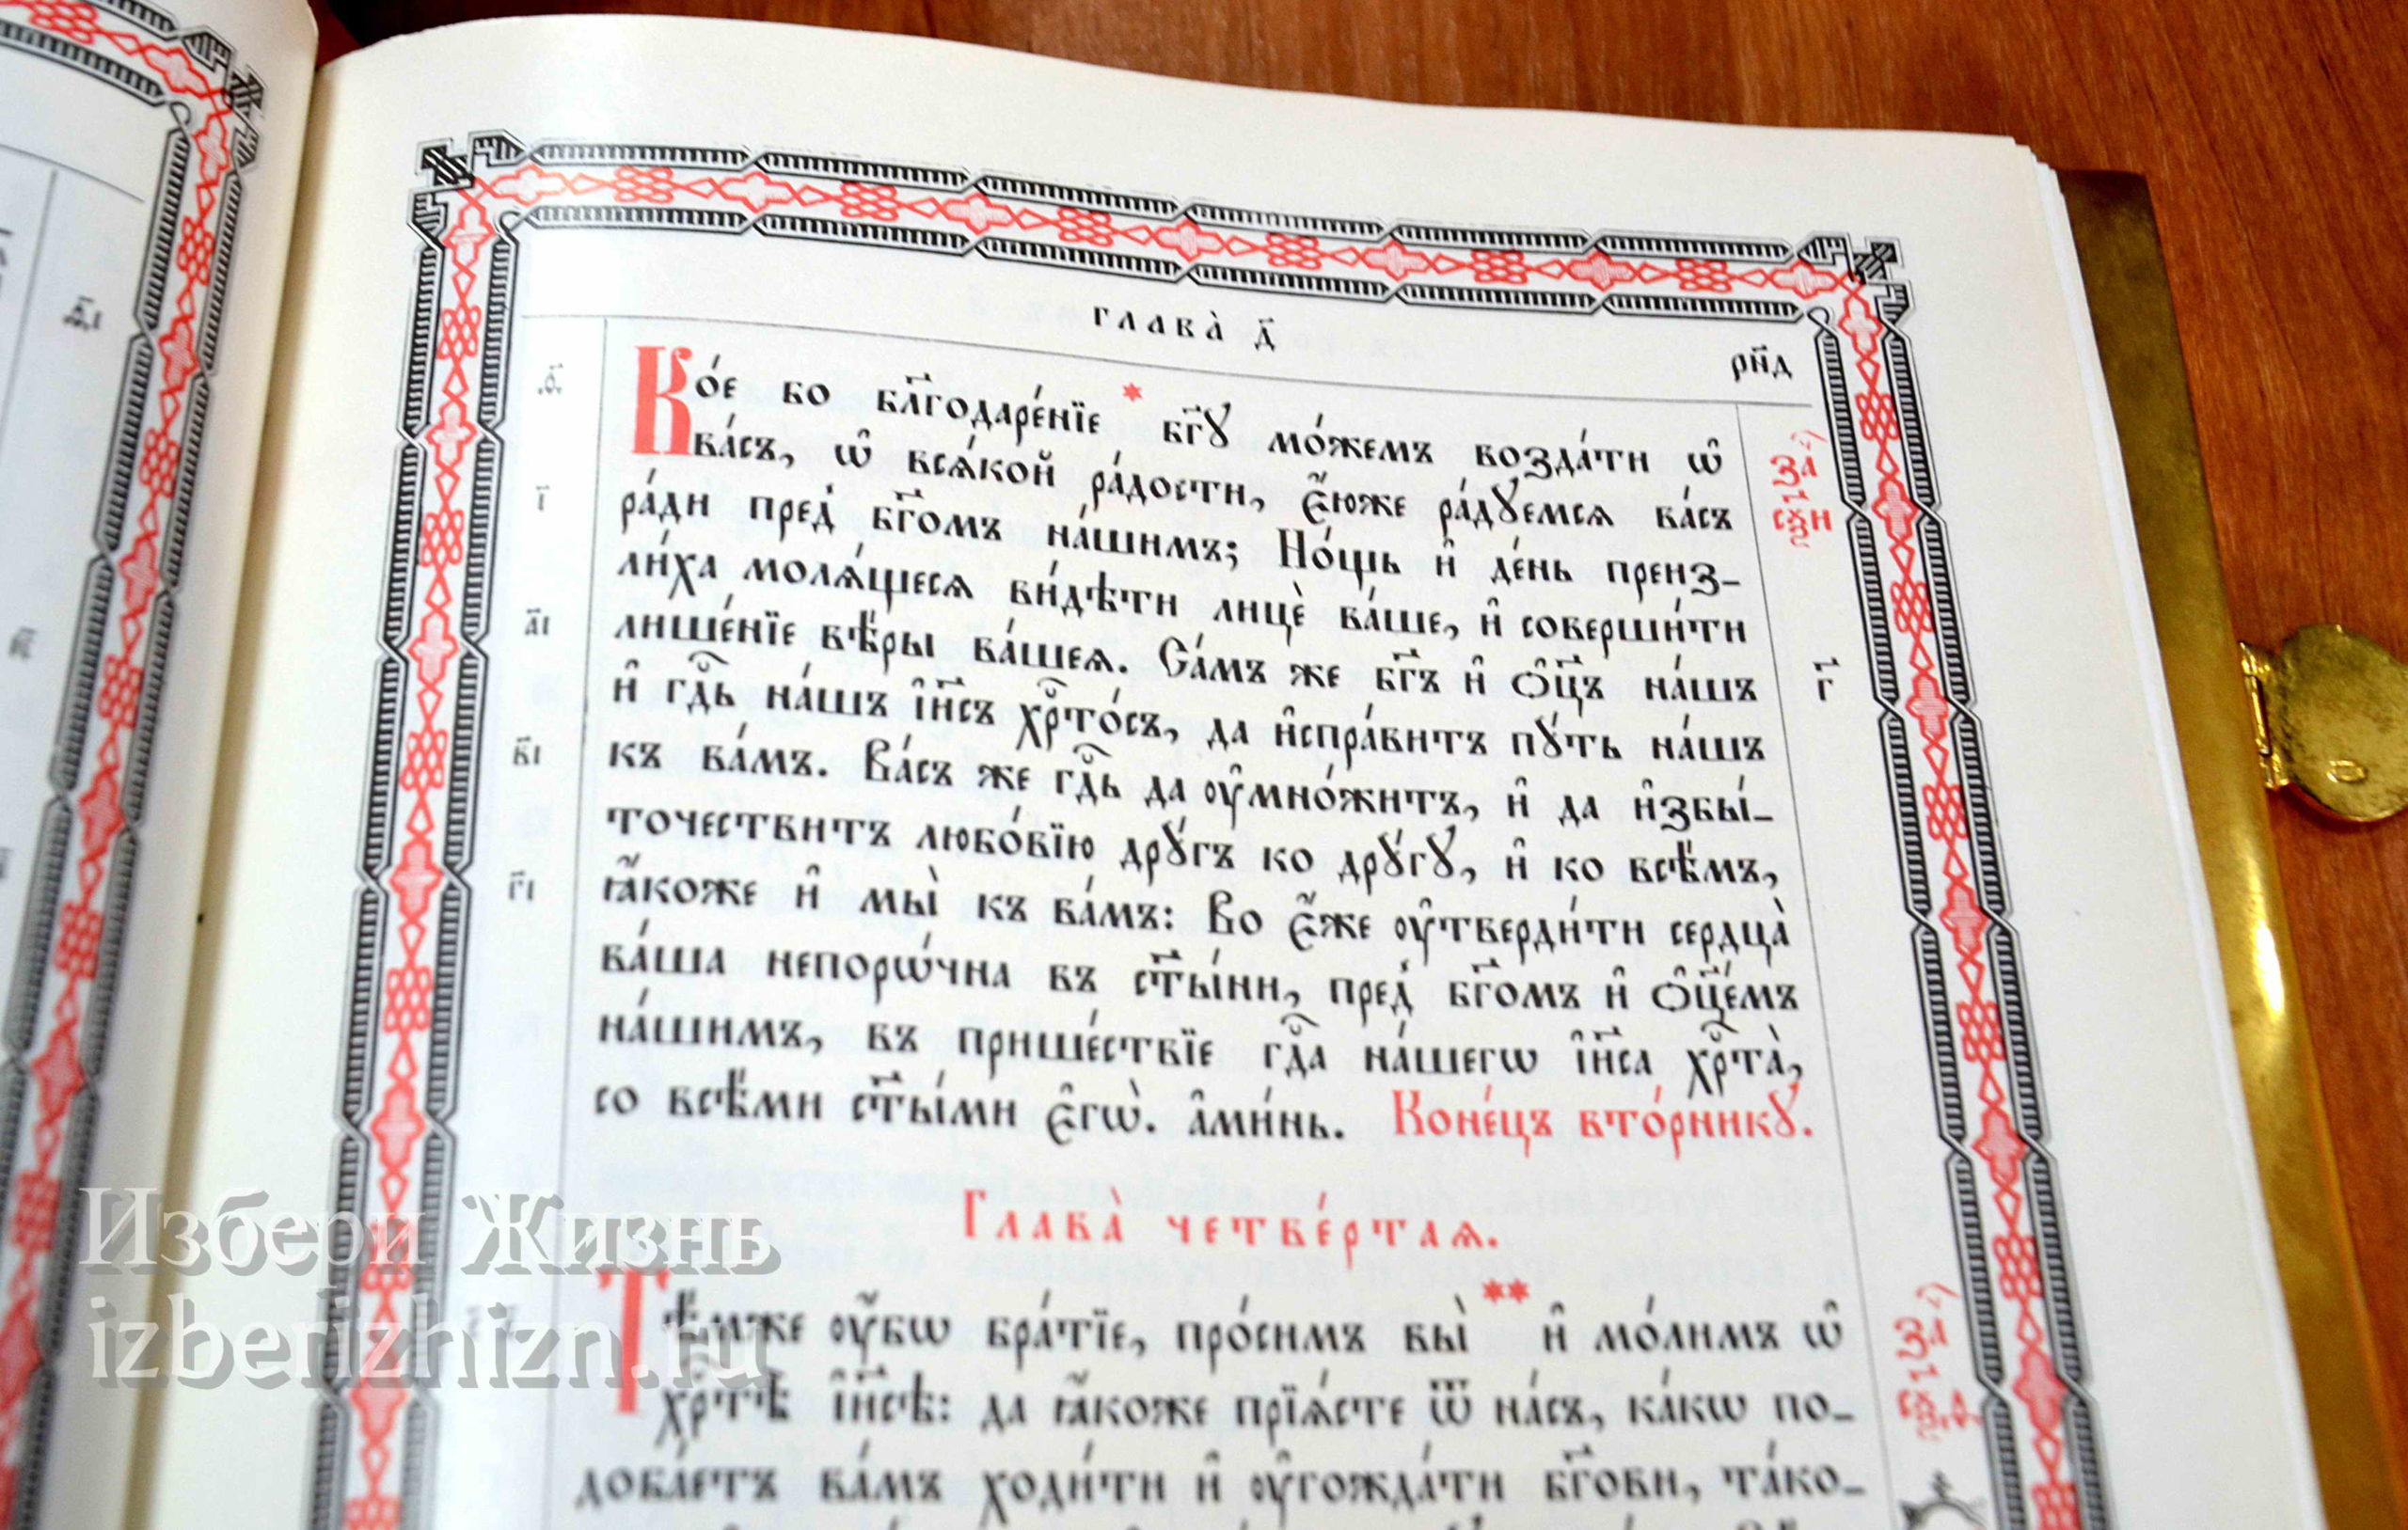 глава̀ д҃
рн҃д
Ко́е бо бл҃годаре́нїе * бг҃ꙋ мо́жемъ возда́ти ѡ҆
ва́съ, ѡ҆ всѧ́кой ра́дости, є҆́юже ра́дꙋемсѧ ва́съ
за҄
сѯ҃и
ра́ди пред̾ бг҃омъ на́шимъ; Но́щь и҆ де́нь преиз-
ли́ха молѧ́щесѧ ви́дѣти лицѐ ва́ше, и҆ соверши́ти
лише́нїе вѣ́ры ва́шеѧ. Са́мъ же бг҃ъ и҆ ѻ҆ц҃ъ на́шъ
и҆ гдⷭ҇ь на́шъ і҆и҃съ хрⷭ҇то́съ, да и҆спра́витъ пꙋ́ть на́шъ
къ ва́мъ. Ва́съ же гдⷭ҇ь да ᲂу҆мно́житъ, и҆ да и҆збы́-
точествитъ любо́вїю дрꙋ́гъ ко дрꙋ́гꙋ, и҆ ко всѣ̑мъ,
ꙗ҆́коже и҆ мы̀ къ ва́мъ: Во є҆́же ᲂу҆тверди́ти сердца̀
ва̑ша непорѡ́чна въ ст҃ы́ни, пред̾ бг҃омъ и҆ ѻ҆ц҃е́мъ
на́шимъ, въ прише́ствїе гдⷭ҇а на́шегѡ і҆и҃са хрⷭ҇та̀,
со всѣ́ми ст҃ы́ми є҆гѡ̀. а҆ми́нь. Коне́цъ вто́рникꙋ.
ѳ҃
і҃
а҃і
в҃і
г҃і
г҃
Глава̀ четве́ртаѧ.
Тѣ́мже ᲂу҆̀бѡ бра́тїе, про́симъ вы̀ ** и҆ мо́лимъ ѡ҆
хрⷭ҇тѣ̀ і҆и҃сѣ: да ꙗ҆́коже прїѧ́сте ѿ на́съ, ка́кѡ по-
доба́етъ ва́мъ ходи́ти и҆ ᲂу҆гожда́ти бг҃ови, та́ко-
за҄
Избери Жизнь
izberizhizn.ru